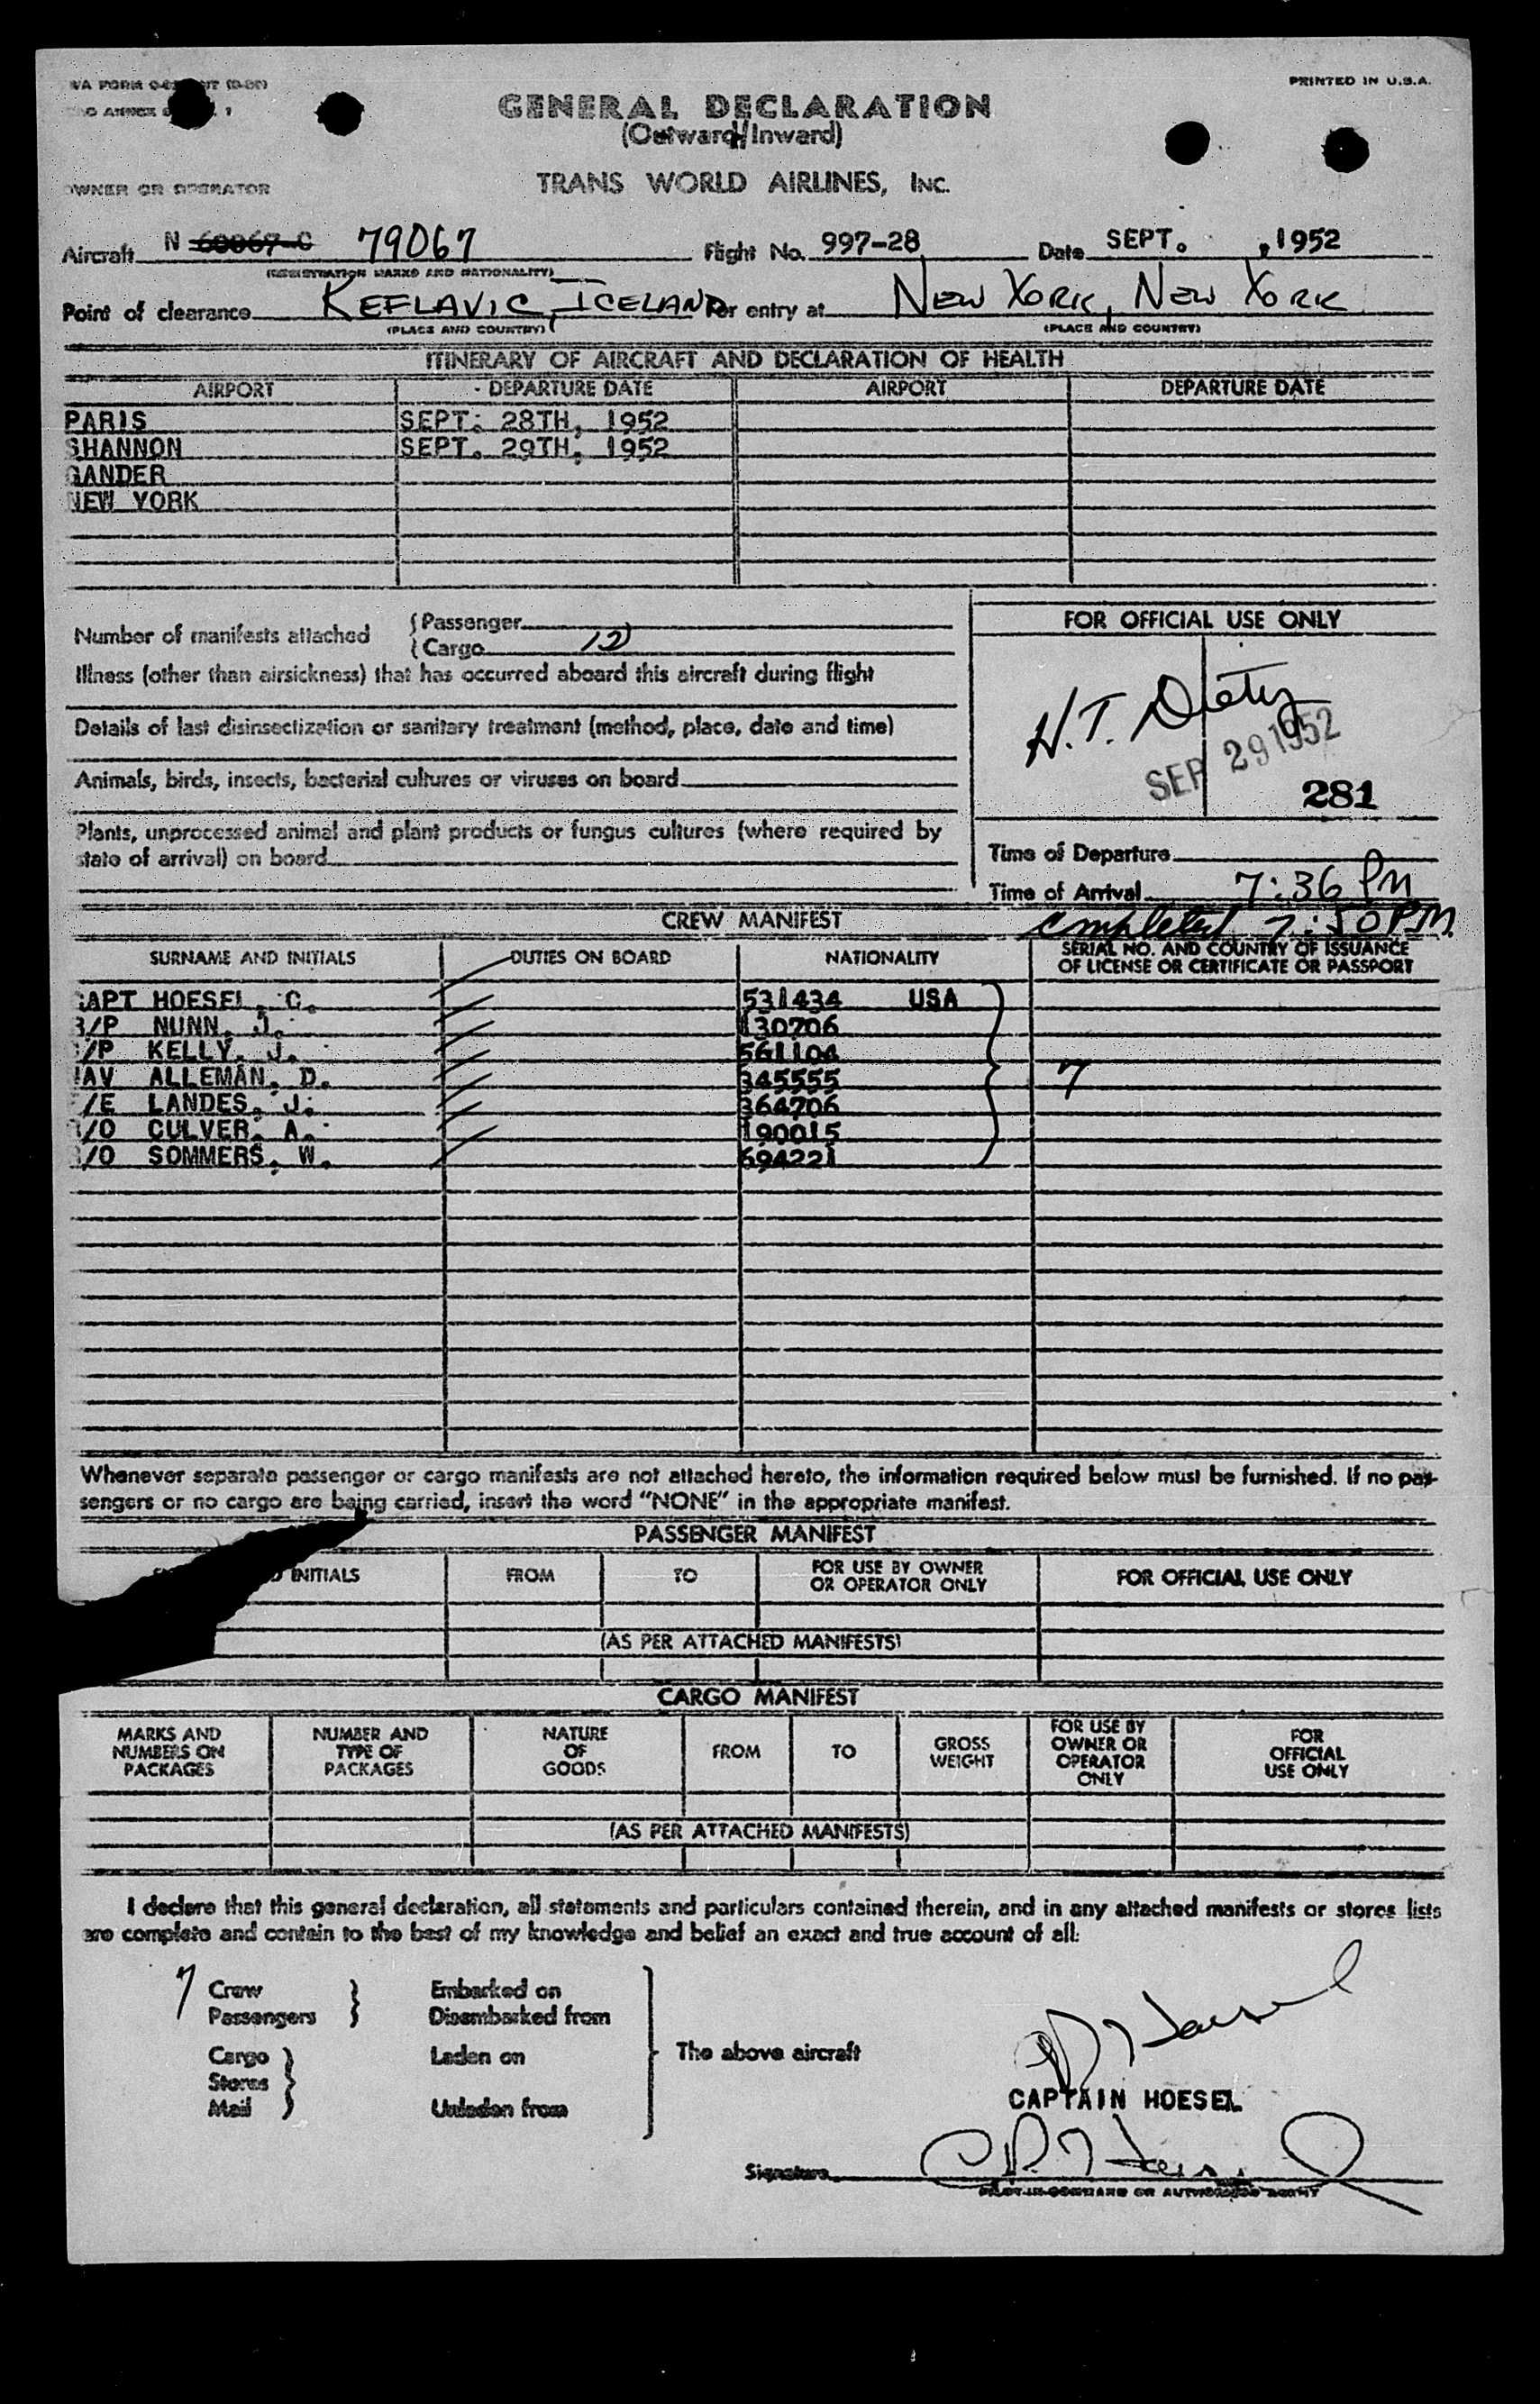 PRINTED IN U.S.A.
GENERAL DECLARATION
(Outward/Inward)
OWNER OR OPERATOR TRANS WORLD AIRLINES, INC.
Aircraft N 60067-C 79067 Flight No. 997-28 Date SEPT. , 1952
(REGISTRATION MARKS AND NATIONALITY)
Point of clearance KEFLAVIC, ICELAND For entry at NEW YORK, NEW YORK
(PLACE AND COUNTRY) (PLACE AND COUNTRY)
ITINERARY OF AIRCRAFT AND DECLARATION OF HEALTH
AIRPORT DEPARTURE DATE AIRPORT DEPARTURE DATE
PARIS SEPT. 28TH, 1952
SHANNON SEPT. 29TH, 1952
GANDER
NEW YORK
Number of manifests attached { Passenger
{ Cargo 12
Illness (other than airsickness) that has occurred aboard this aircraft during flight
Details of last disinsectization or sanitary treatment (method, place, date and time)
Animals, birds, insects, bacterial cultures or viruses on board
Plants, unprocessed animal and plant products or fungus cultures (where required by
state of arrival) on board
FOR OFFICIAL USE ONLY
H.T. Dietz
SEP 29 1952
281
Time of Departure
Time of Arrival 7:36 PM
completed 7:50 PM.
CREW MANIFEST
SURNAME AND INITIALS DUTIES ON BOARD NATIONALITY SERIAL NO. AND COUNTRY OF ISSUANCE
OF LICENSE OR CERTIFICATE OR PASSPORT
CAPT HOESEL, C. 531434 USA
/P NUNN, J. 130706
/P KELLY, J. 561104
NAV ALLEMAN, D. 345555 7
/E LANDES, J. 364706
/O CULVER, A. 190015
/O SOMMERS, W. 694221
Whenever separate passenger or cargo manifests are not attached hereto, the information required below must be furnished. If no pas-
sengers or no cargo are being carried, insert the word "NONE" in the appropriate manifest.
PASSENGER MANIFEST
INITIALS FROM TO FOR USE BY OWNER
OR OPERATOR ONLY FOR OFFICIAL USE ONLY
(AS PER ATTACHED MANIFESTS)
CARGO MANIFEST
MARKS AND
NUMBERS ON
PACKAGES NUMBER AND
TYPE OF
PACKAGES NATURE
OF
GOODS FROM TO GROSS
WEIGHT FOR USE BY
OWNER OR
OPERATOR
ONLY FOR
OFFICIAL
USE ONLY
(AS PER ATTACHED MANIFESTS)
I declare that this general declaration, all statements and particulars contained therein, and in any attached manifests or stores lists
are complete and contain to the best of my knowledge and belief an exact and true account of all:
7 Crew } Embarked on
Passengers } Disembarked from
Cargo } Laden on The above aircraft
Stores }
Mail } Unladen from
CAPTAIN HOESEL
Signature
PILOT-IN-COMMAND OR AUTHORIZED AGENT